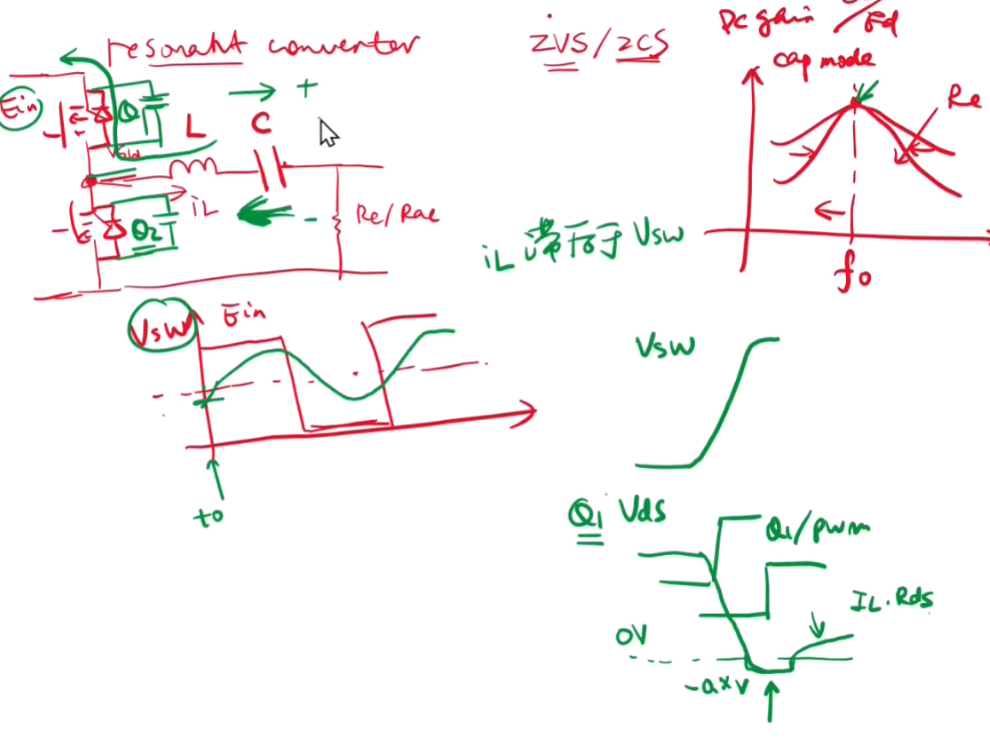 resonant converter
ZVS/ZCS
DC gain /Ed
cap mode
Ein
Q1
L
C
+
Vsw
iL
Q2
-
Re/Rac
Re
iL 滞后于 Vsw
fo
Vsw
Ein
to
Vsw
Q1 Vds
Q1/pwm
IL.Rds
0V
-0.xV